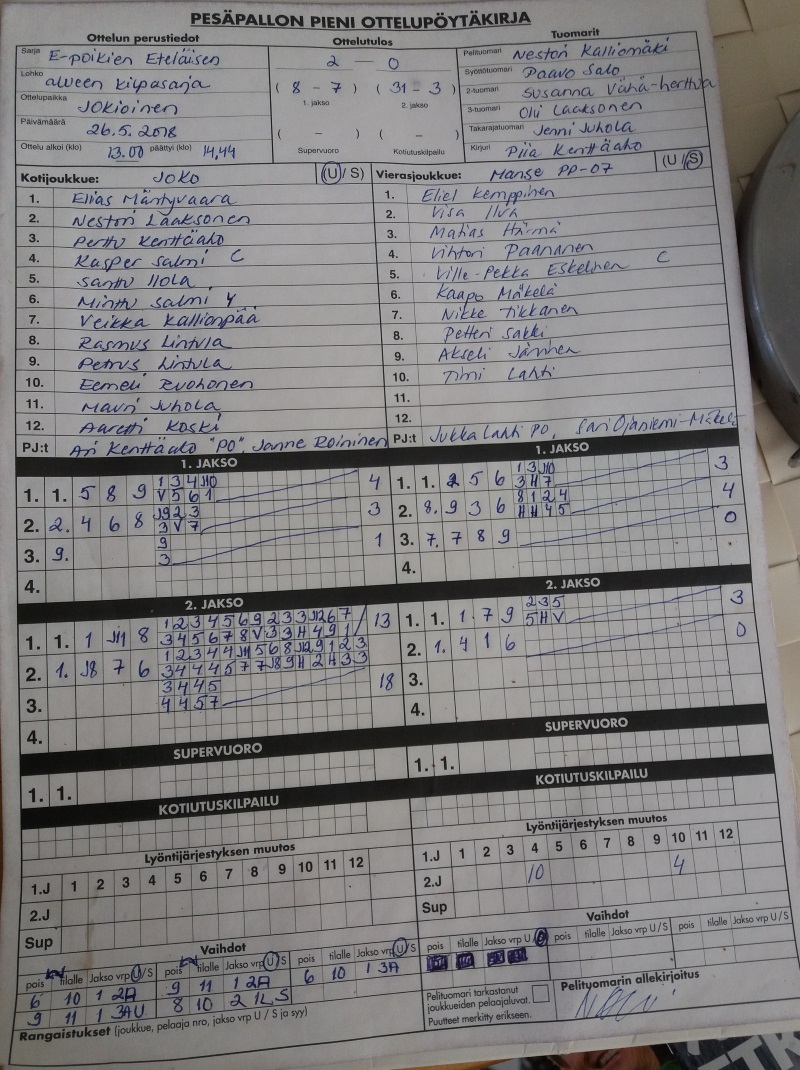 PESÄPALLON PIENI OTTELUPÖYTÄKIRJA
Ottelun perustiedot Ottelutulos Tuomarit
Sarja E-poikien Eteläisen
Lohko alueen kilpasarja
Ottelupaikka JOKIOINEN
Päivämäärä 26.5.2018
Ottelu alkoi (klo) 13.00 päättyi (klo) 14.44
2 — 0
( 8 - 7 ) ( 31 - 3 )
1. jakso 2. jakso
( – ) ( – )
Supervuoro Kotiutuskilpailu
Pelituomari Nestori Kalliomäki
Syöttötuomari Paavo Salo
2-tuomari Susanna Vähä-herttua
3-tuomari Olli Laaksonen
Takarajatuomari Jenni Juhola
Kirjuri Piia Kenttäaho
Kotijoukkue: JOKO (U/S)
1. Elias Mäntyvaara
2. Nestori Laaksonen
3. Perttu Kenttäaho
4. Kasper Salmi C
5. Santtu Ilola
6. Minttu Salmi Y
7. Veikka Kallionpää
8. Rasmus Lintula
9. Petrus Lintula
10. Eemeli Ruohonen
11. Mauri Juhola
12. Aaretti Koski
PJ:t Ari Kenttäaho "PO", Janne Roininen
Vierasjoukkue: Manse PP-07 (U/S)
1. Eliel Kemppinen
2. Visa Ilva
3. Matias Härmä
4. Vihtori Paananen
5. Ville-Pekka Eskelinen C
6. Kaapo Mäkelä
7. Nikke Tikkanen
8. Petteri Sakki
9. Akseli Jänninen
10. Timi Lahti
11.
12.
PJ:t Jukka Lahti PO, Sari Ojaniemi-Mäkelä
1. JAKSO
1. 1. 5 8 9 1 3 4 J10 4
V 5 6 1
2. 2. 4 6 8 J9 2 3 3
3 V 7
3. 9. 9 1
3
4.
1. JAKSO
1. 1. 2 5 6 1 3 J10 3
3 H 7
2. 8. 9 3 6 8 1 2 4 4
H H 4 5
3. 7. 7 8 9 0
4.
2. JAKSO
1. 1. 1 J11 8 1 2 3 4 5 6 9 2 3 3 J12 6 7 13
3 4 5 6 7 8 V 3 3 H 4 9 1
2. 1. J8 7 6 1 2 3 4 4 J11 5 6 8 J12 9 1 2 3
3 4 4 4 5 7 7 J8 9 H 2 H 3 3
3 4 4 5 18
3. 4 4 5 7
4.
2. JAKSO
1. 1. 1 7 9 2 3 5 3
5 H V
2. 1. 4 1 6 0
3.
4.
SUPERVUORO
1. 1.
SUPERVUORO
1. 1.
KOTIUTUSKILPAILU
KOTIUTUSKILPAILU
Lyöntijärjestyksen muutos
1.J 1 2 3 4 5 6 7 8 9 10 11 12
2.J
Sup
Lyöntijärjestyksen muutos
1.J 1 2 3 4 5 6 7 8 9 10 11 12
2.J 10 4
Sup
Vaihdot
pois tilalle Jakso vrp U/S pois tilalle Jakso vrp U/S pois tilalle Jakso vrp U/S
6 10 1 2A 9 11 1 2A 6 10 1 3A
9 11 1 3AU 8 10 2 1L S
Vaihdot
pois tilalle Jakso vrp U/S pois tilalle Jakso vrp U/S pois tilalle Jakso vrp U/S
Rangaistukset (joukkue, pelaaja nro, jakso vrp U / S ja syy)
Pelituomari tarkastanut
joukkueiden pelaajaluvat.
Puutteet merkitty erikseen.
Pelituomarin allekirjoitus